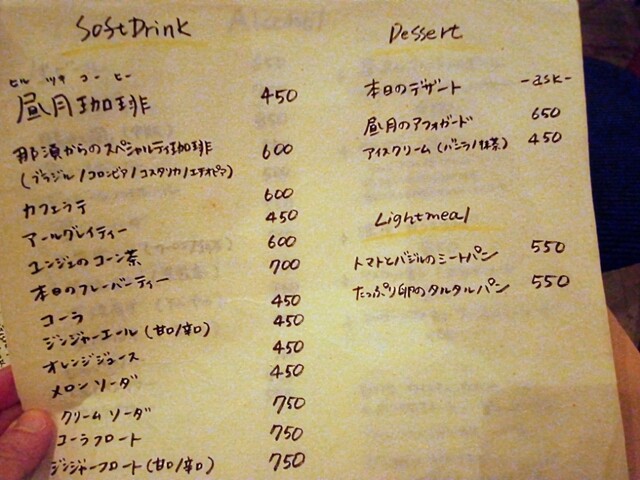 Soft Drink
ヒル ツキ コー ヒー
昼月珈琲 450
那須からのスペシャルティ珈琲 600
(ブラジル/コロンビア/コスタリカ/エチオピア)
カフェラテ 600
アールグレイティー 450
ユンジェのコーン茶 600
本日のフレーバーティー 700
コーラ 450
ジンジャーエール(甘口/辛口) 450
オレンジジュース 450
メロンソーダ 450
クリームソーダ 750
コーラフロート 750
ジンジャーフロート(甘口/辛口) 750
Dessert
本日のデザート -ask-
昼月のアフォガード 650
アイスクリーム(バニラ/抹茶) 450
Lightmeal
トマトとバジルのミートパン 550
たっぷり卵のタルタルパン 550